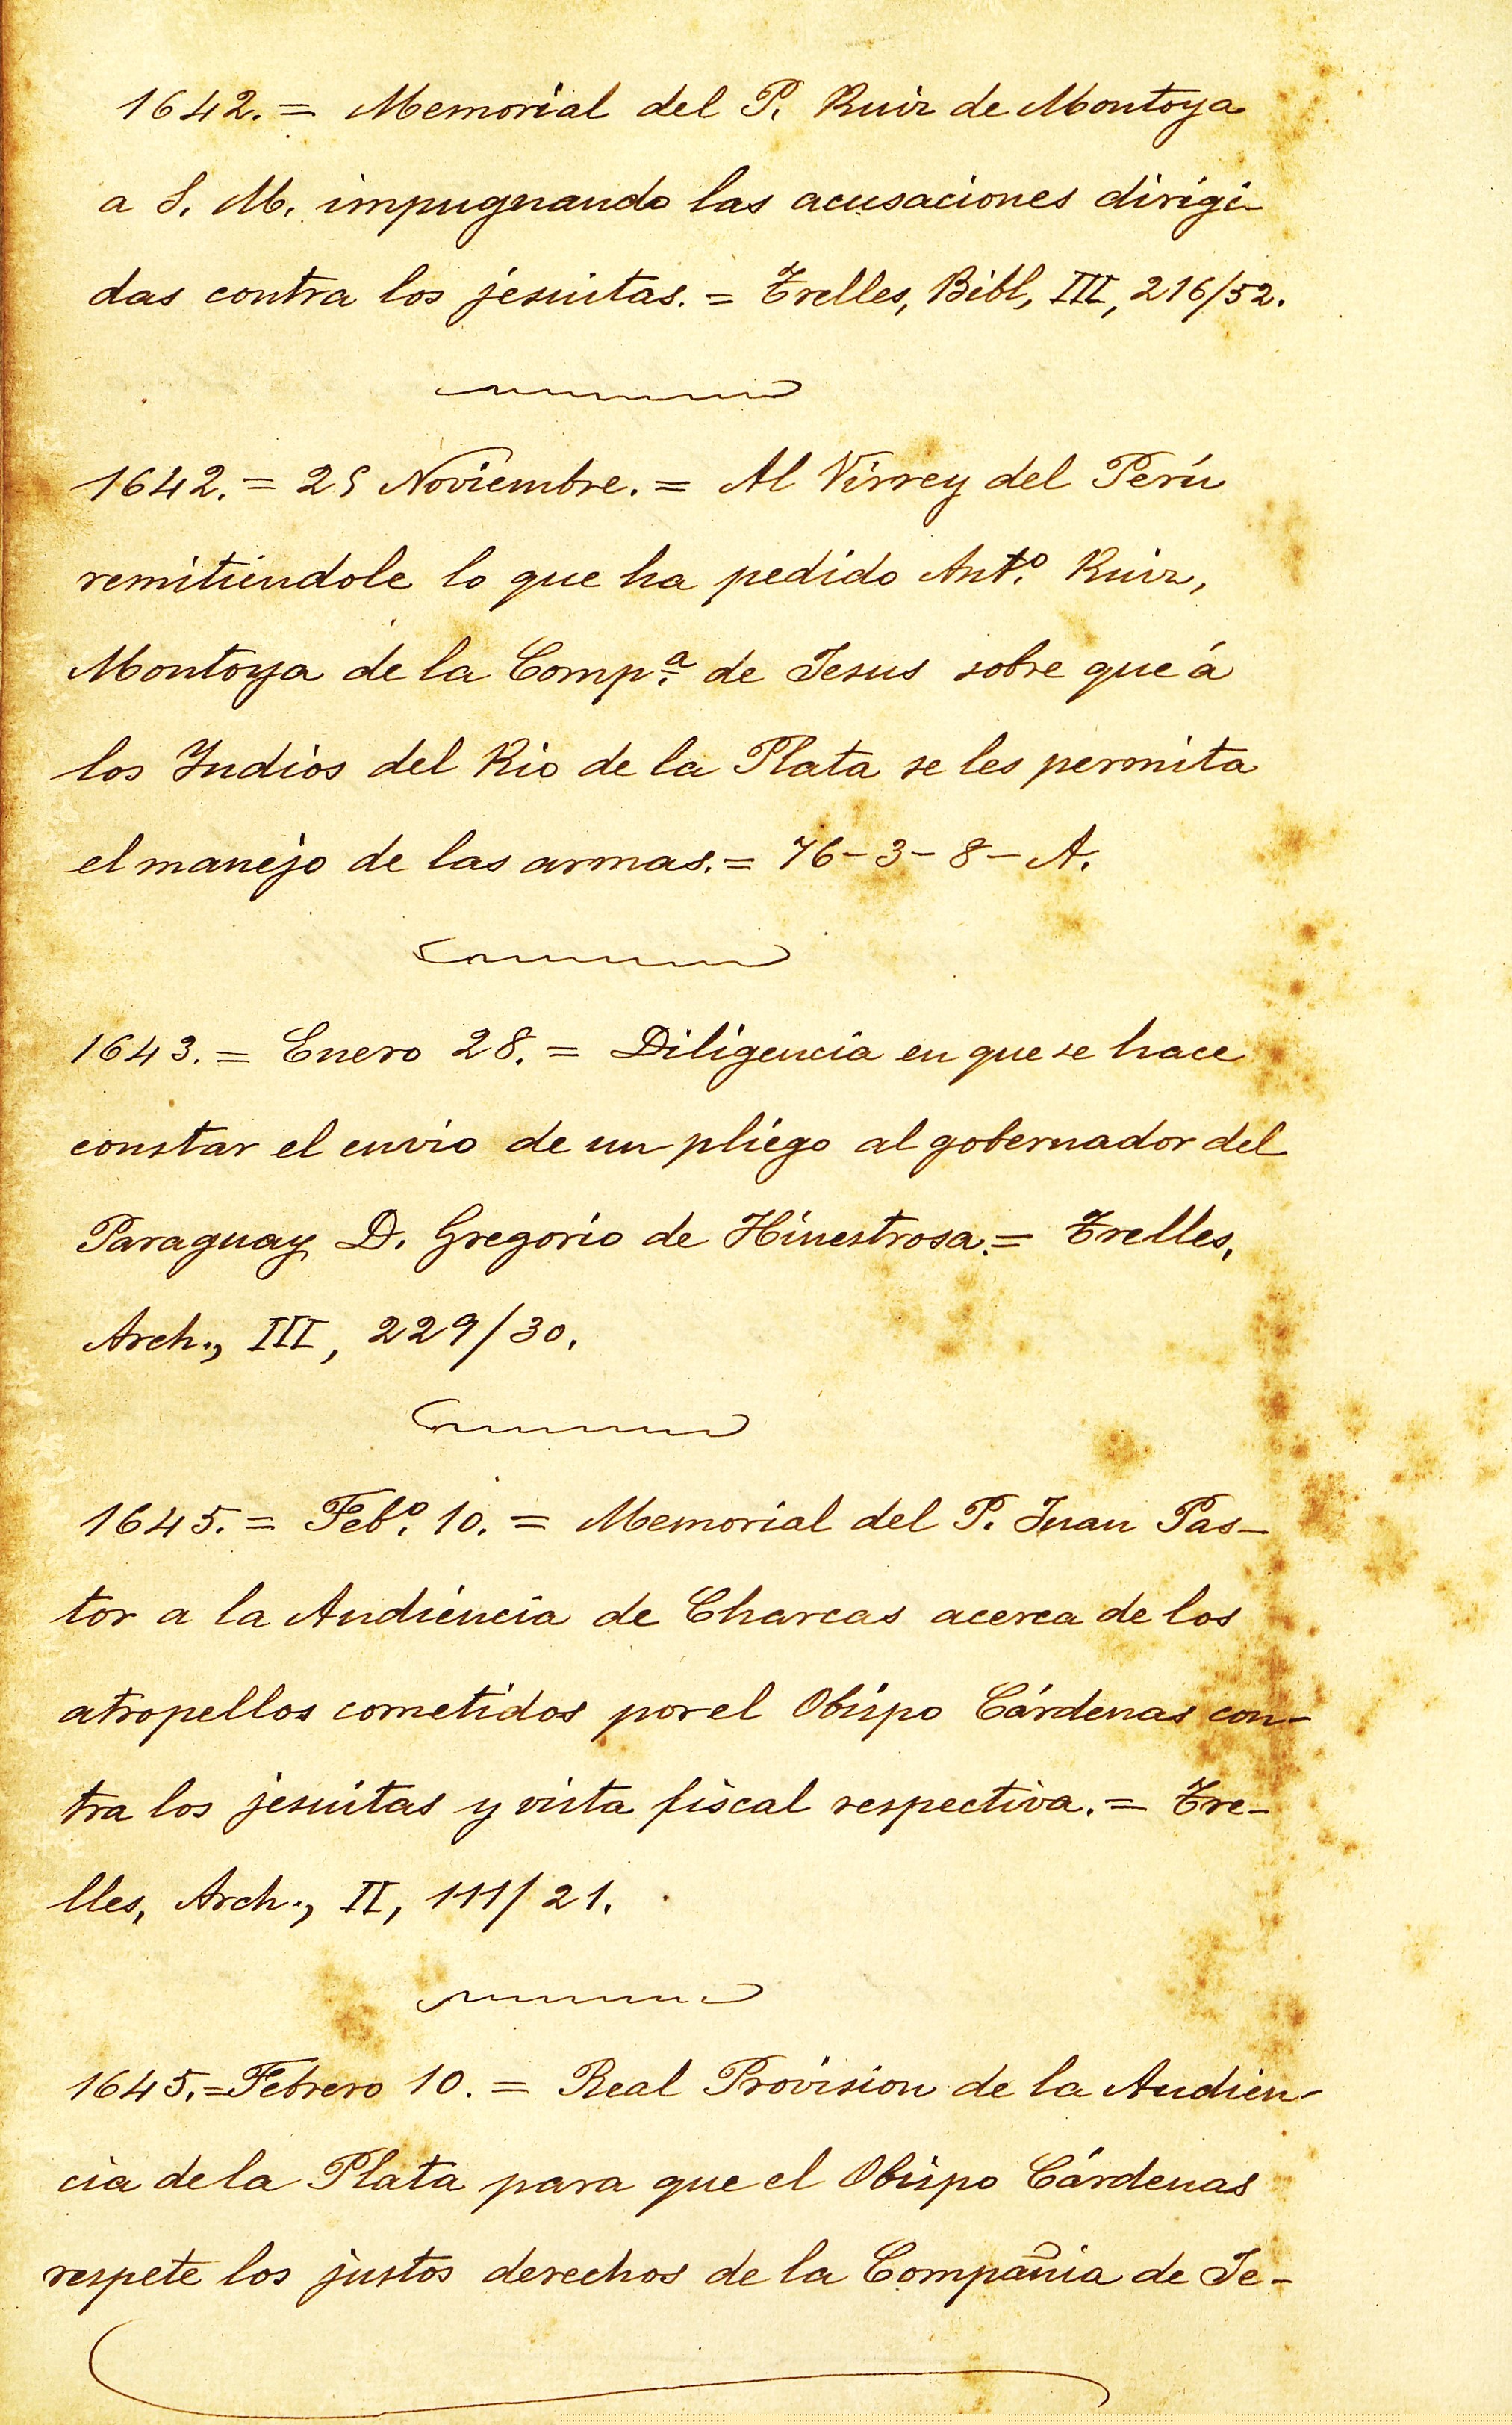 1642. = Memorial del P. Ruiz de Montoya
a S. M. impugnando las acusaciones dirigi-
das contra los jesuitas. = Trelles, Bibl, III, 216/52.
1642. = 25 Noviembre. = Al Virrey del Perú
remitiéndole lo que ha pedido Antº. Ruiz,
Montoya de la Compª. de Jesus sobre que á
los Indios del Rio de la Plata se les permita
el manejo de las armas. = 76-3-8-A.
1643. = Enero 28. = Diligencia en que se hace
constar el envio de un pliego al gobernador del
Paraguay D. Gregorio de Hinestrosa. = Trelles,
Arch., III, 229/30.
1645. = Febº. 10. = Memorial del P. Juan Pas-
tor a la Audiencia de Charcas acerca de los
atropellos cometidos por el Obispo Cárdenas con-
tra los jesuitas y vista fiscal respectiva. = Tre-
lles, Arch., II, 111/21.
1645. = Febrero 10. = Real Provision de la Audien-
cia de la Plata para que el Obispo Cárdenas
respete los justos derechos de la Compañia de Je-